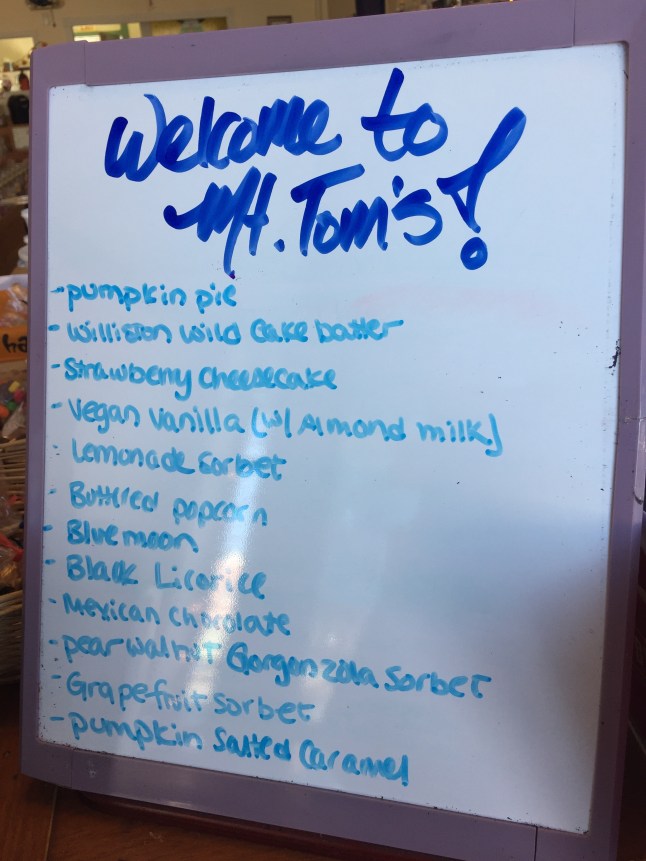 Welcome to
Mt. Tom's!
-pumpkin pie
- Williston Wild Cake batter
- Strawberry Cheesecake
- Vegan Vanilla (w/ Almond milk)
- Lemonade Sorbet
- Buttered popcorn
- Blue moon
- Black Licorice
- Mexican chocolate
- pear walnut Gorgonzola Sorbet
- Grapefruit sorbet
- pumpkin Salted Caramel